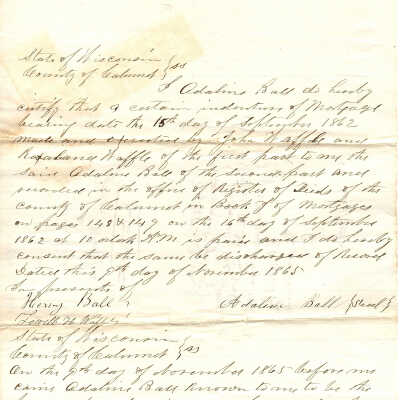 State of Wisconsin } ss
County of Calumet }
I Adaline Ball do hereby
certify that a certain indenture of Mortgage
bearing date the 15th day of September 1862
made and executed by John Waffle and
Waffle of the first part to me the
said Adaline Ball of the second part and
recorded in the office of Register of Deeds of the
County of Calumet in Book of Mortgages
on pages 148 & 149 on the 16th day of September
1862 at 10 oclok A.M. is paid and I do hereby
consent that the same be discharged of Record
Dated this 9th day of November 1865
In presents of
Henry Ball Adaline Ball {Seal}
H
State of Wisconsin } ss
County of Calumet }
On the 9th day of November 1865 before me
came Adaline Ball known to me to be the